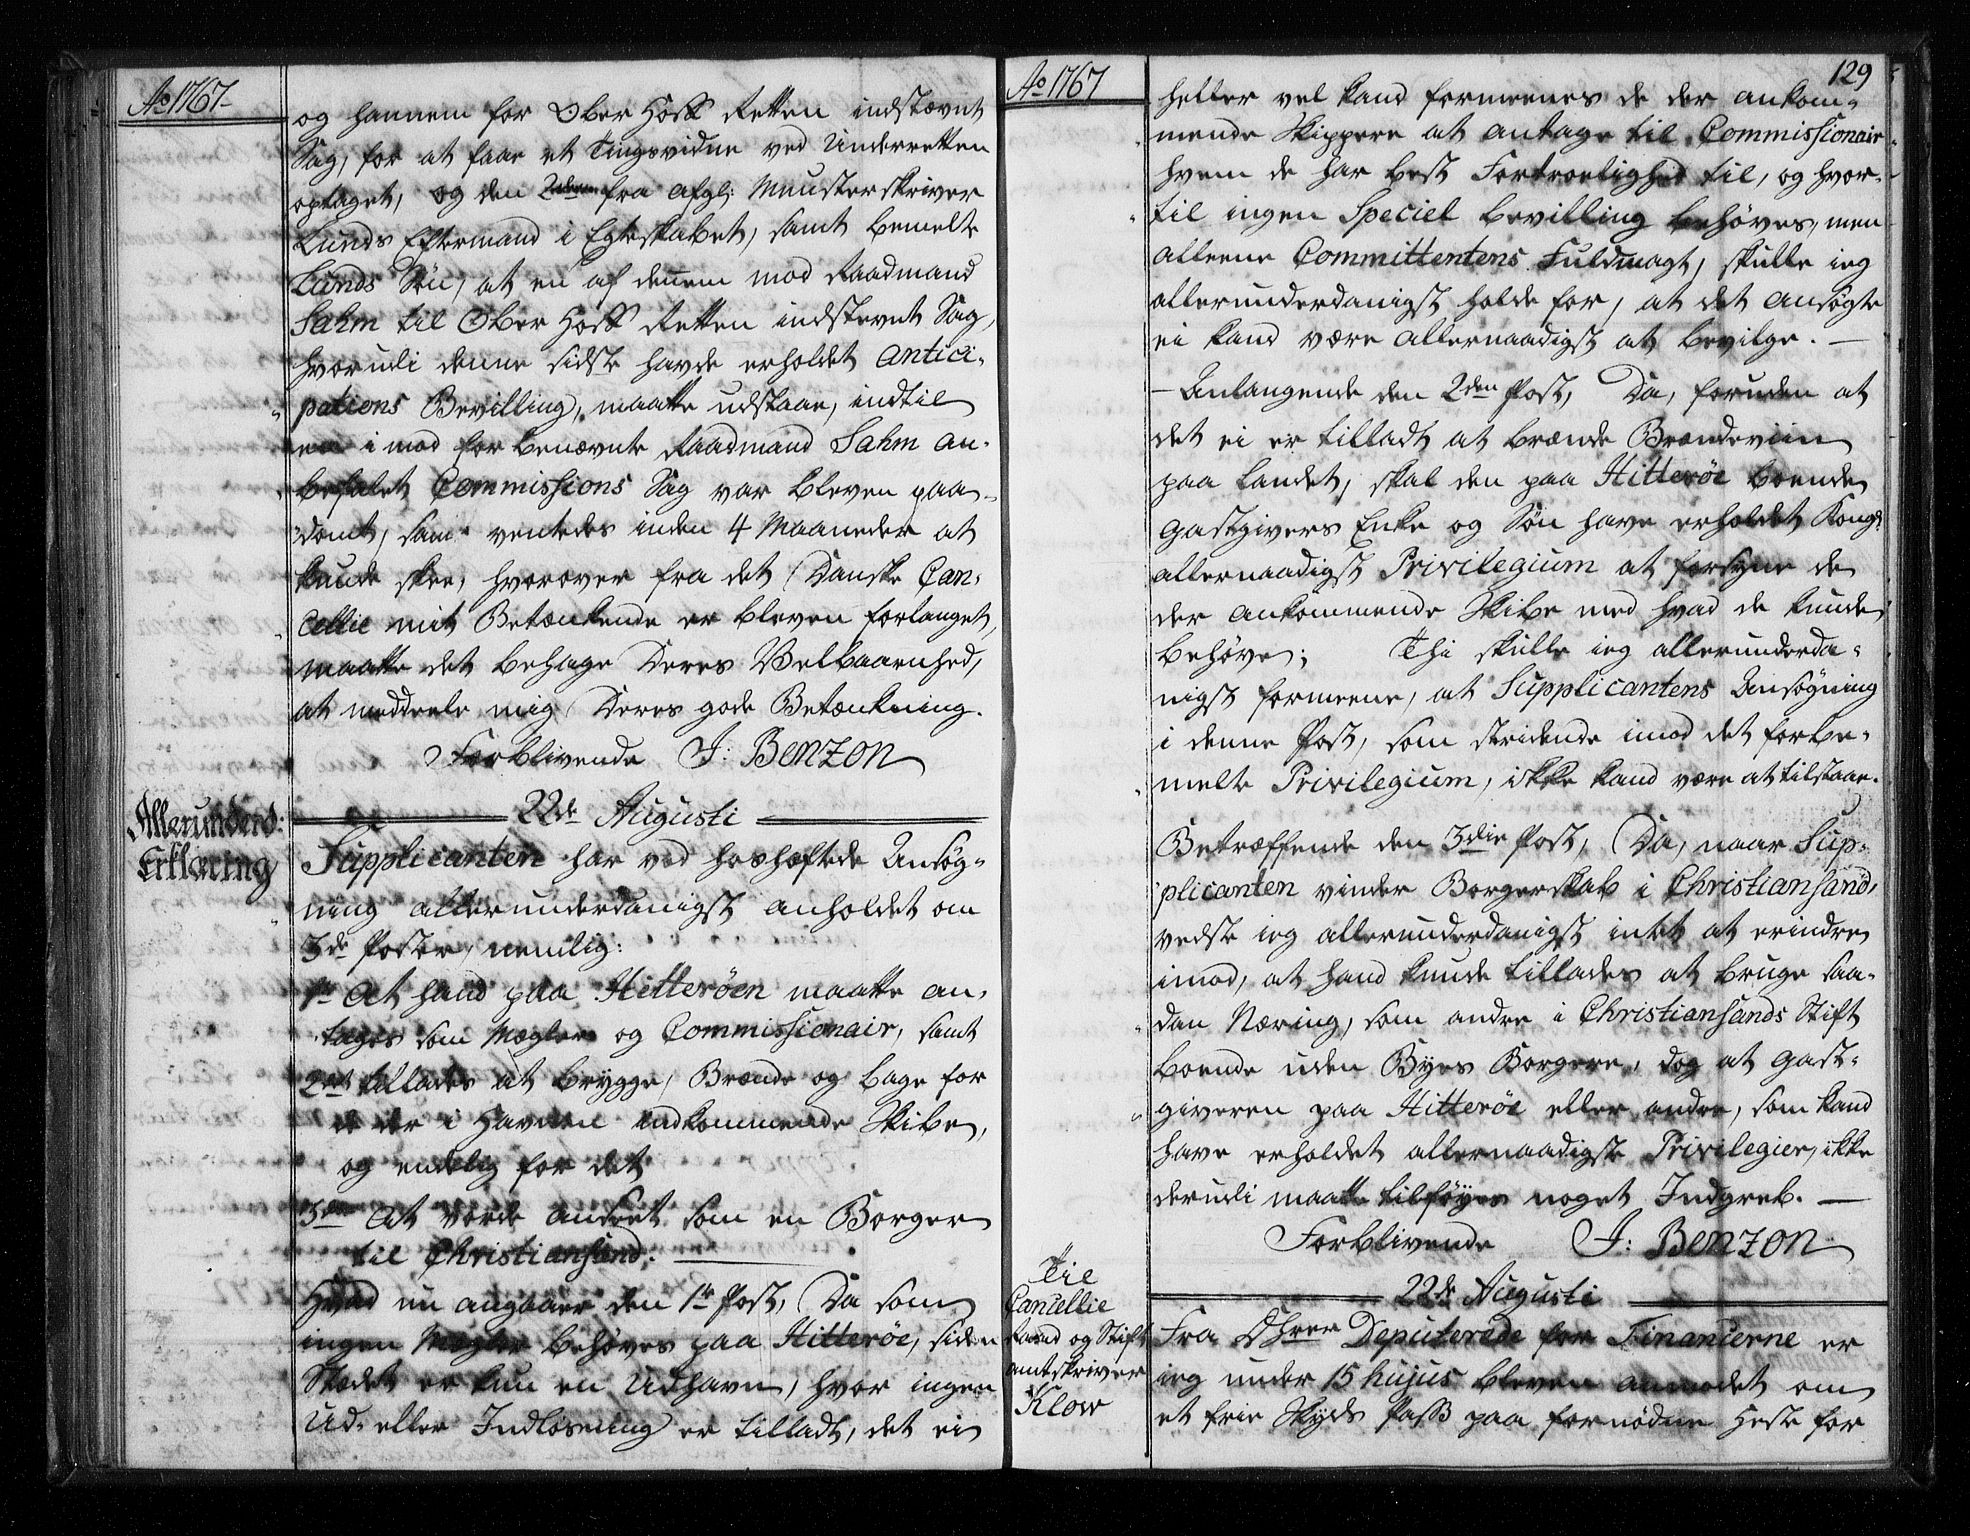 Ao 1767
og hannem for Ober Hoff Retten indstævnt
Sag, for at faae et Tingsvidne ved Underretten
optaget, og den 2den fra afgl: Munsterskriver
Lunds Eftermand i Egteskabet, samt bemelte
Lunds Søn, at en af dennem mod Raadmand
Sahm til Ober Hoff Retten indstevnt Sag,
hvorudi denne sidste havde erholdet Antici-
pations Bevilling, maatte udstaae, indtil
en i mod forbenævnte Raadmand Sahm an-
befalet Commissions Sag var bleven paa-
dømt, som ventedes inden 4 Maaneder at
kunde skee, hvorover fra det Danske Can-
cellie mit Betænkende er bleven forlanget,
maatte det behage Deres Velbaarenhed,
at meddeele mig Deres gode Betænkning.
Forblivende J: Benzon
22de Augusti
Allerunderd:
Erklæring
Supplicanten har ved hoshæftede Ansøg-
ning allerunderdanigst anholdet om
3de Poster, nemlig:
1te At hand paa Hitterøen maatte an-
tages som Mægler og Commissionair, samt
2det tillades at brygge, Brænde og bage for
de der i Havnene indkommende Skibe,
og endelig for det
3die At vorde anseet som en Borger
til Christiansand:
Hvad nu angaaer den 1te Post, Da som
ingen Mægler behøves paa Hitterøe, siden
Stædet er kun en Udhavn, hvor ingen
Ud- eller Indlosning er tilladt, det ei
Ao 1767
129
heller vel kand formeenes de der ankom-
mende Skippere at antage til Commissionair
hvem de har best Fortroelighed til, og hvor-
til ingen Speciel Bevilling behøves, men
alleene Committentens Fuldmagt, skulle ieg
allerunderdanigst holde for, at det ansøgte
ei kand være allernaadigst at bevilge. —
— Anlangende den 2den Post, Da, foruden at
det ei er tilladt at brænde Brændeviin
paa Landet, skal den paa Hitterøe boende
Gastgivers Enke og Søn have erholdet Kongl:
allernaadigst Privilegium at forsyne de
der ankommende Skibe med hvad de kunde
behøve; Thi skulle ieg allerunderda-
nigst formeene, at Supplicantens Ansøgning
i denne Post, som stridende imod det forbe-
melte Privilegium, ikke kand være at tilstaae.
Betræffende den 3die Post, Da, naar Sup-
plicanten vinder Borgerskab i Christiansand,
vedste ieg allerunderdanigst intet at erindre
imod, at hand kunde tillades at bruge saa-
dan Næring, som andre i Christiansands Stift
boende uden Byes Borgere, dog at Gast-
giveren paa Hitterøe eller andre, som kand
have erholdet allernaadigste Privilegier, ikke
derudi maatte tilføyes noget Indgreb. —
Forblivende J: Benzon
22de Augusti
Til
Cancellie
Raad og Stift
amtskriver
Klow
Fra DHrrer Deputerede for Financerne er
ieg under 15 hujus bleven anmodet om
et frie Skyds Pass paa fornødne Heste for